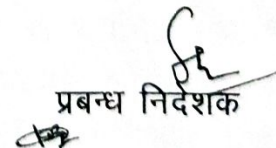 प्रबन्ध निर्देशक